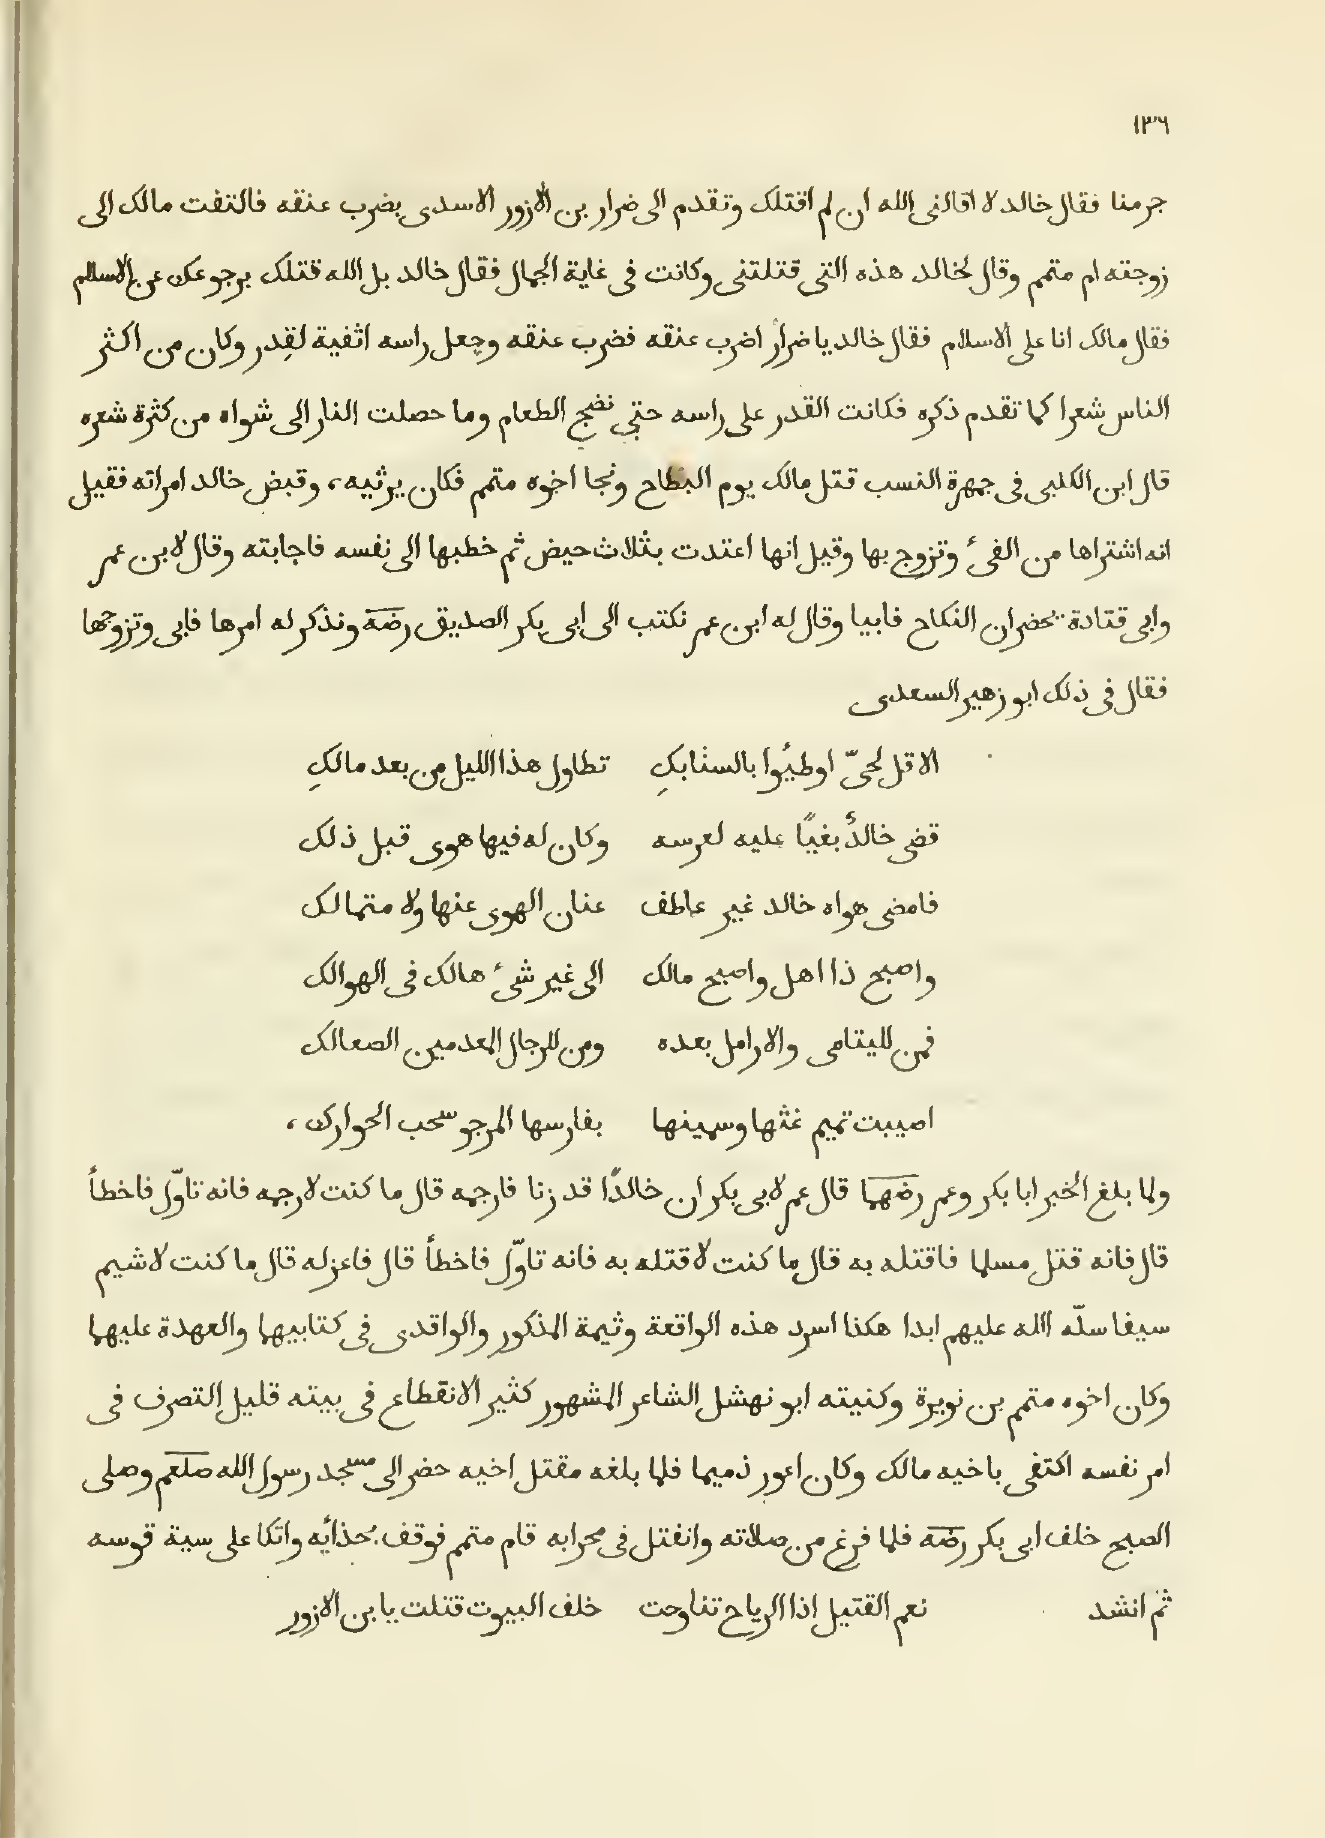 ١٣٦
جرمنا فقال خالد لا اقالنى الله ان لم اقتلك وتقدم الى ضرار بن الازور الاسدى بضرب عنقه فالتفت مالك الى
زوجته ام متمم وقال لخالد هذه التى قتلتنى وكانت فى غاية الجمال فقال خالد بل الله قتلك برجوعك عن الاسلام
فقال مالك انا على الاسلام فقال خالد يا ضرار اضرب عنقه فضرب عنقه وجعل راسه اثفية لقِدر وكان من اكثر
الناس شعرا كما تقدم ذكره فكانت القدر على راسه حتى نضج الطعام وما حصلت النار الى شواه من كثرة شعره
قال ابن الكلبى فى جمهرة النسب قتل مالك يوم البطاح ونجا اخوه متمم فكان يرثيه، وقبض خالد امراته فقيل
انه اشتراها من الفىء وتزوج بها وقيل انها اعتدت بثلاث حيض ثم خطبها الى نفسه فاجابته وقال لابن عمر
وابى قتادة يحضران النكاح فابيا وقال له ابن عمر نكتب الى ابى بكر الصديق رضه ونذكر له امرها فابى وتزوجها
فقال فى ذلك ابو زهير السعدى
الا قل لحىّ اوطيُوا بالسنابكِ تطاول هذا الليل من بعد مالكِ
قضى خالدٌ بغيًا عليه لعرسه وكان له فيها هوى قبل ذلك
فامضى هواه خالد غير عاطف عنان الهوى عنها ولا متمالك
واصبح ذا اهل واصبح مالك الى غير شىء هالك فى الهوالك
فمن لليتامى والارامل بعده ومن للرجال المعدمين الصعالك
اصيبت تميم غثها وسمينها بفارسها المرجو سحب الحوارك،
ولما بلغ الخبر ابا بكر وعمر رضهما قال عمر لابى بكر ان خالدًا قد زنا فارجمه قال ما كنت لارجمه فانه تاوّل فاخطأ
قال فانه قتل مسلما فاقتله به قال ما كنت لاقتله به فانه تاوّل فاخطأ قال فاعزله قال ما كنت لاشيم
سيفا سلّه الله عليهم ابدا هكذا اسرد هذه الواقعة وثيمة المذكور والواقدى فى كتابيهما والعهدة عليهما
وكان اخوه متمم بن نويرة وكنيته ابو نهشل الشاعر المشهور كثير الانقطاع فى بيته قليل التصرف فى
امر نفسه اكتفى باخيه مالك وكان اعور ذميما فلما بلغه مقتل اخيه حضر الى مسجد رسول الله صلعم وصلى
الصبح خلف ابى بكر رضه فلما فرغ من صلاته وانفتل فى محرابه قام متمم فوقف بحذائه واتكا على سية قوسه
ثم انشد نعم القتيل اذا الرياح تناوحت خلف البيوت قتلت يا بن الازور